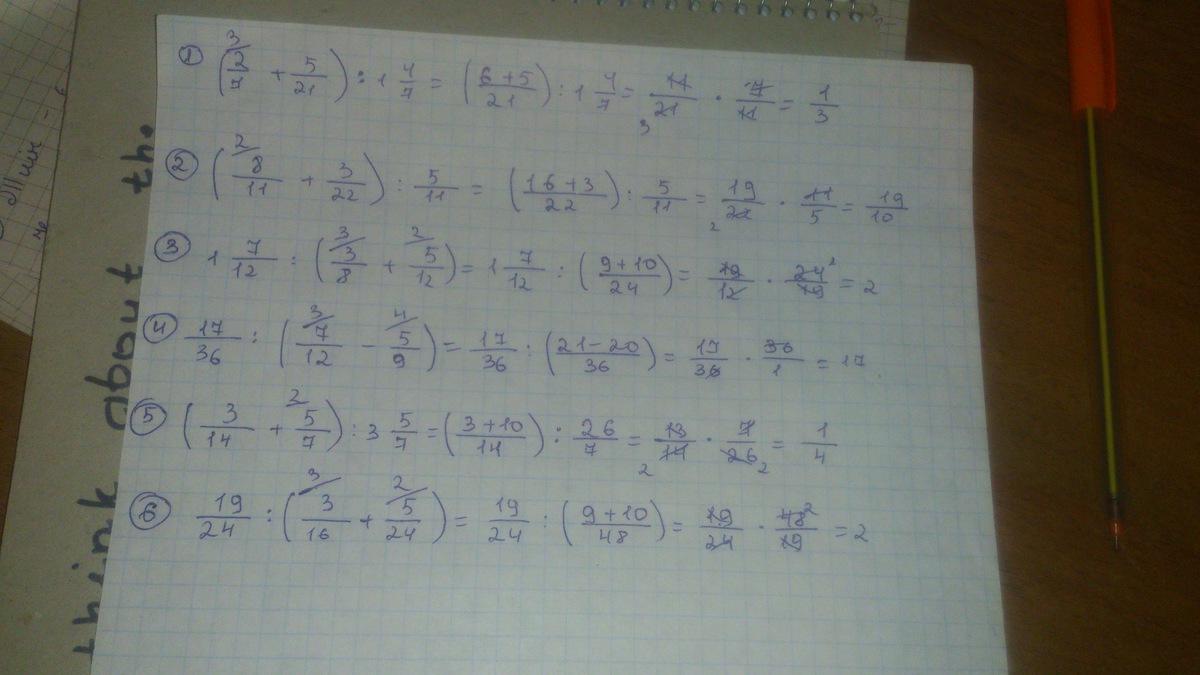 ① (2/7 + 5/21) : 1 4/7 = ((6+5)/21) : 1 4/7 = 11/21 · 7/11 = 1/3
② (8/11 + 3/22) : 5/11 = ((16+3)/22) : 5/11 = 19/22 · 11/5 = 19/10
③ 1 7/12 : (3/8 + 5/12) = 1 7/12 : ((9+10)/24) = 19/12 · 24/19 = 2
④ 17/36 : (7/12 - 5/9) = 17/36 : ((21-20)/36) = 17/36 · 36/1 = 17
⑤ (3/14 + 5/7) : 3 5/7 = ((3+10)/14) : 26/7 = 13/14 · 7/26 = 1/4
⑥ 19/24 : (3/16 + 5/24) = 19/24 : ((9+10)/48) = 19/24 · 48/19 = 2
think about th.